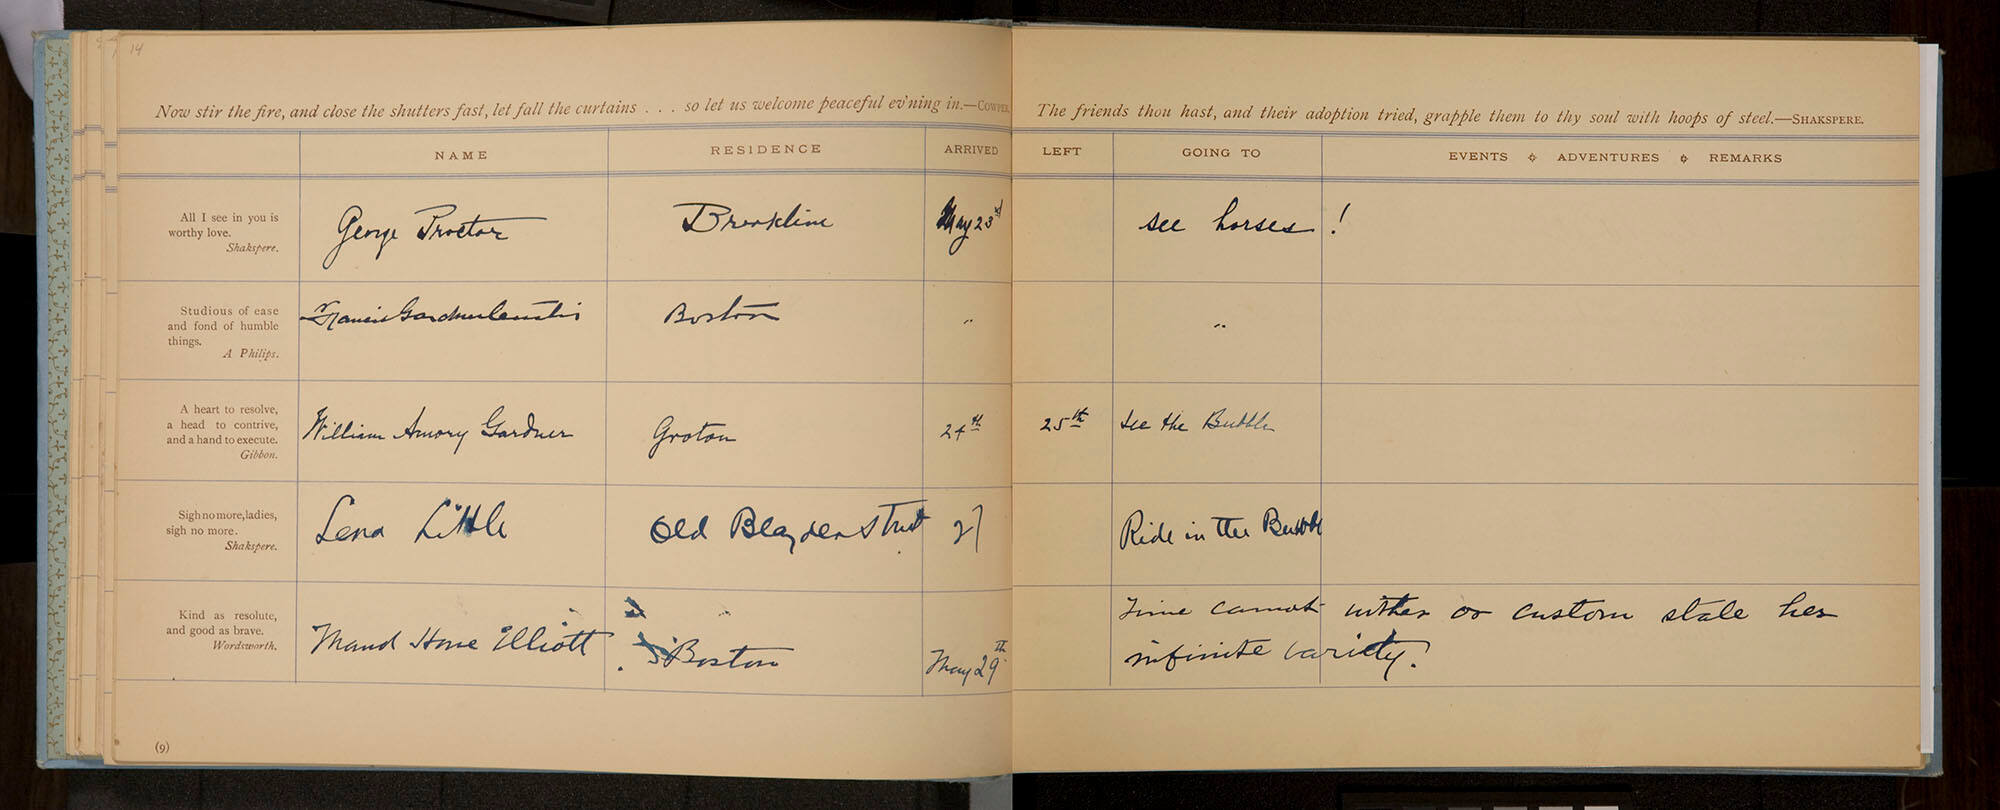 14
Now stir the fire, and close the shutters fast, let fall the curtains . . . so let us welcome peaceful ev'ning in.—COWPER.
The friends thou hast, and their adoption tried, grapple them to thy soul with hoops of steel.—SHAKSPERE.
NAME RESIDENCE ARRIVED LEFT GOING TO EVENTS ADVENTURES REMARKS
All I see in you is
worthy love.
Shakspere.
George Proctor Brookline May 23rd see horses!
Studious of ease
and fond of humble
things.
A Philips.
Francis Gardner Boston " "
A heart to resolve,
a head to contrive,
and a hand to execute.
Gibbon.
William Amory Gardner Groton 24th 25th See the Bubble
Sigh no more, ladies,
sigh no more.
Shakspere.
Lena Little Old Blagden Street 27 Ride in the Bubble
Kind as resolute,
and good as brave.
Wordsworth.
Maud Howe Elliott Boston May 29th
Time cannot wither or custom stale her
infinite variety!
(9)